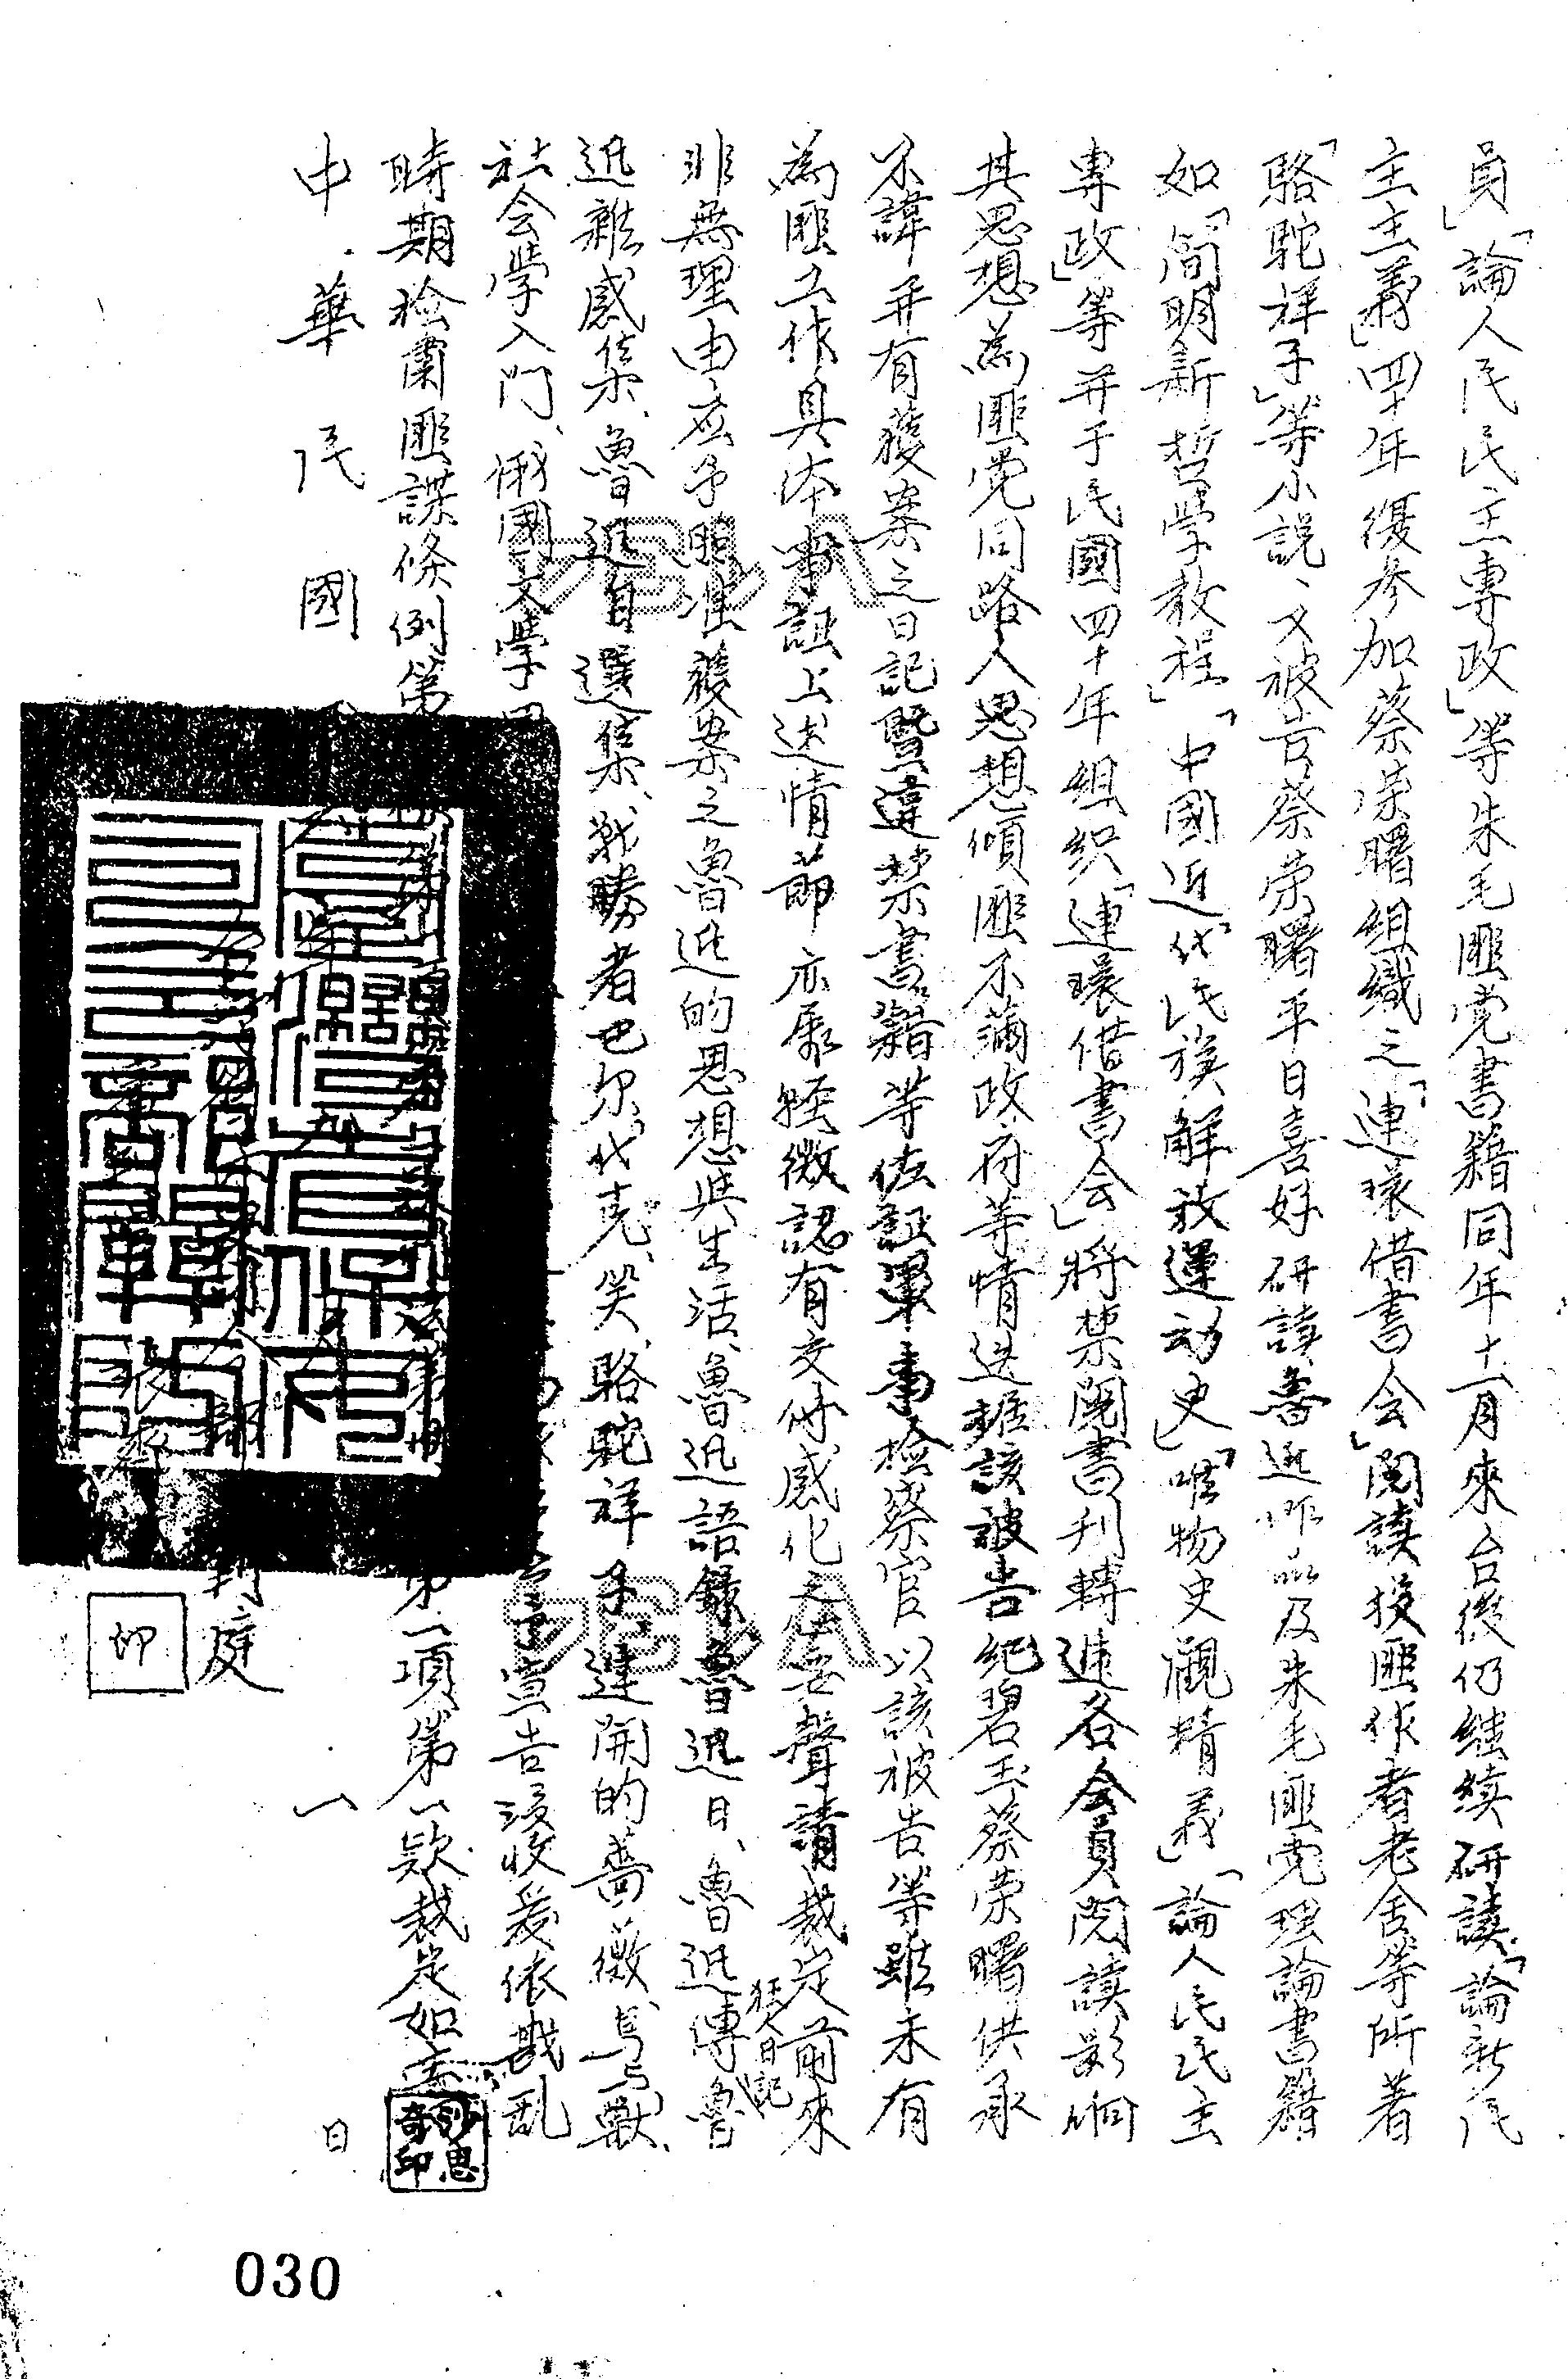 員」「論人民民主專政」等朱毛匪党書籍同年十一月來台後仍继续研讀「論新民
主主義」四十年復参加蔡荣曙組織之「連环借書会」閱讀投匪作者老舍等所著
「駱駝祥子」等小説、又被告蔡荣曙平日喜好研讀魯迅作品及朱毛匪党理論書籍
如「简明新哲学教程」「中國近代民族解放運动史」「唯物史觀精義」「論人民民主
專政」等并于民國四十年组织「連環借書会」将禁閱書刊轉遞各会員閱讀影响
其思想為匪党同路人思想傾匪不滿政府等情迭據該被告紀碧玉蔡荣曙供承
不諱并有獲案之日記暨違禁書籍等佐証軍事檢察官以該被告等雖未有
為匪工作具体事証上述情節亦屬輕微認有交付感化之必要聲請裁定前來
非無理由应予照准獲案之魯迅的思想與生活、魯迅語錄、魯迅日、魯迅傳、魯
狂人日記
迅雜感集、魯迅自選集、戰勝者巴尔代克、笑、駱駝祥子、遲開的薔薇、鳥与獸、
社会学入门、俄國文学
予宣告没收爰依戡乱
時期檢肅匪諜條例第
第二項第一款裁定如主
中華民國
月
一
日
庭
印
030